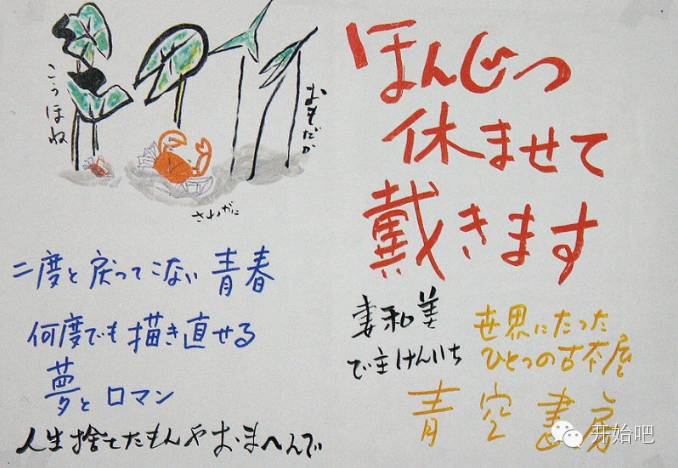 こうほね
おもだか
さわがに
ほんじつ
休ませて
戴きます
二度と戻ってこない青春
何度でも描き直せる
夢とロマン
人生捨てたもんやおまへんで
妻和美
で主けんいち
世界にたった
ひとつの古本屋
青空書房
开始吧